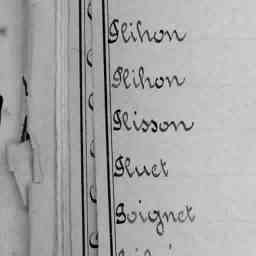 Plihon
Plihon
Plisson
Pluet
Poignet